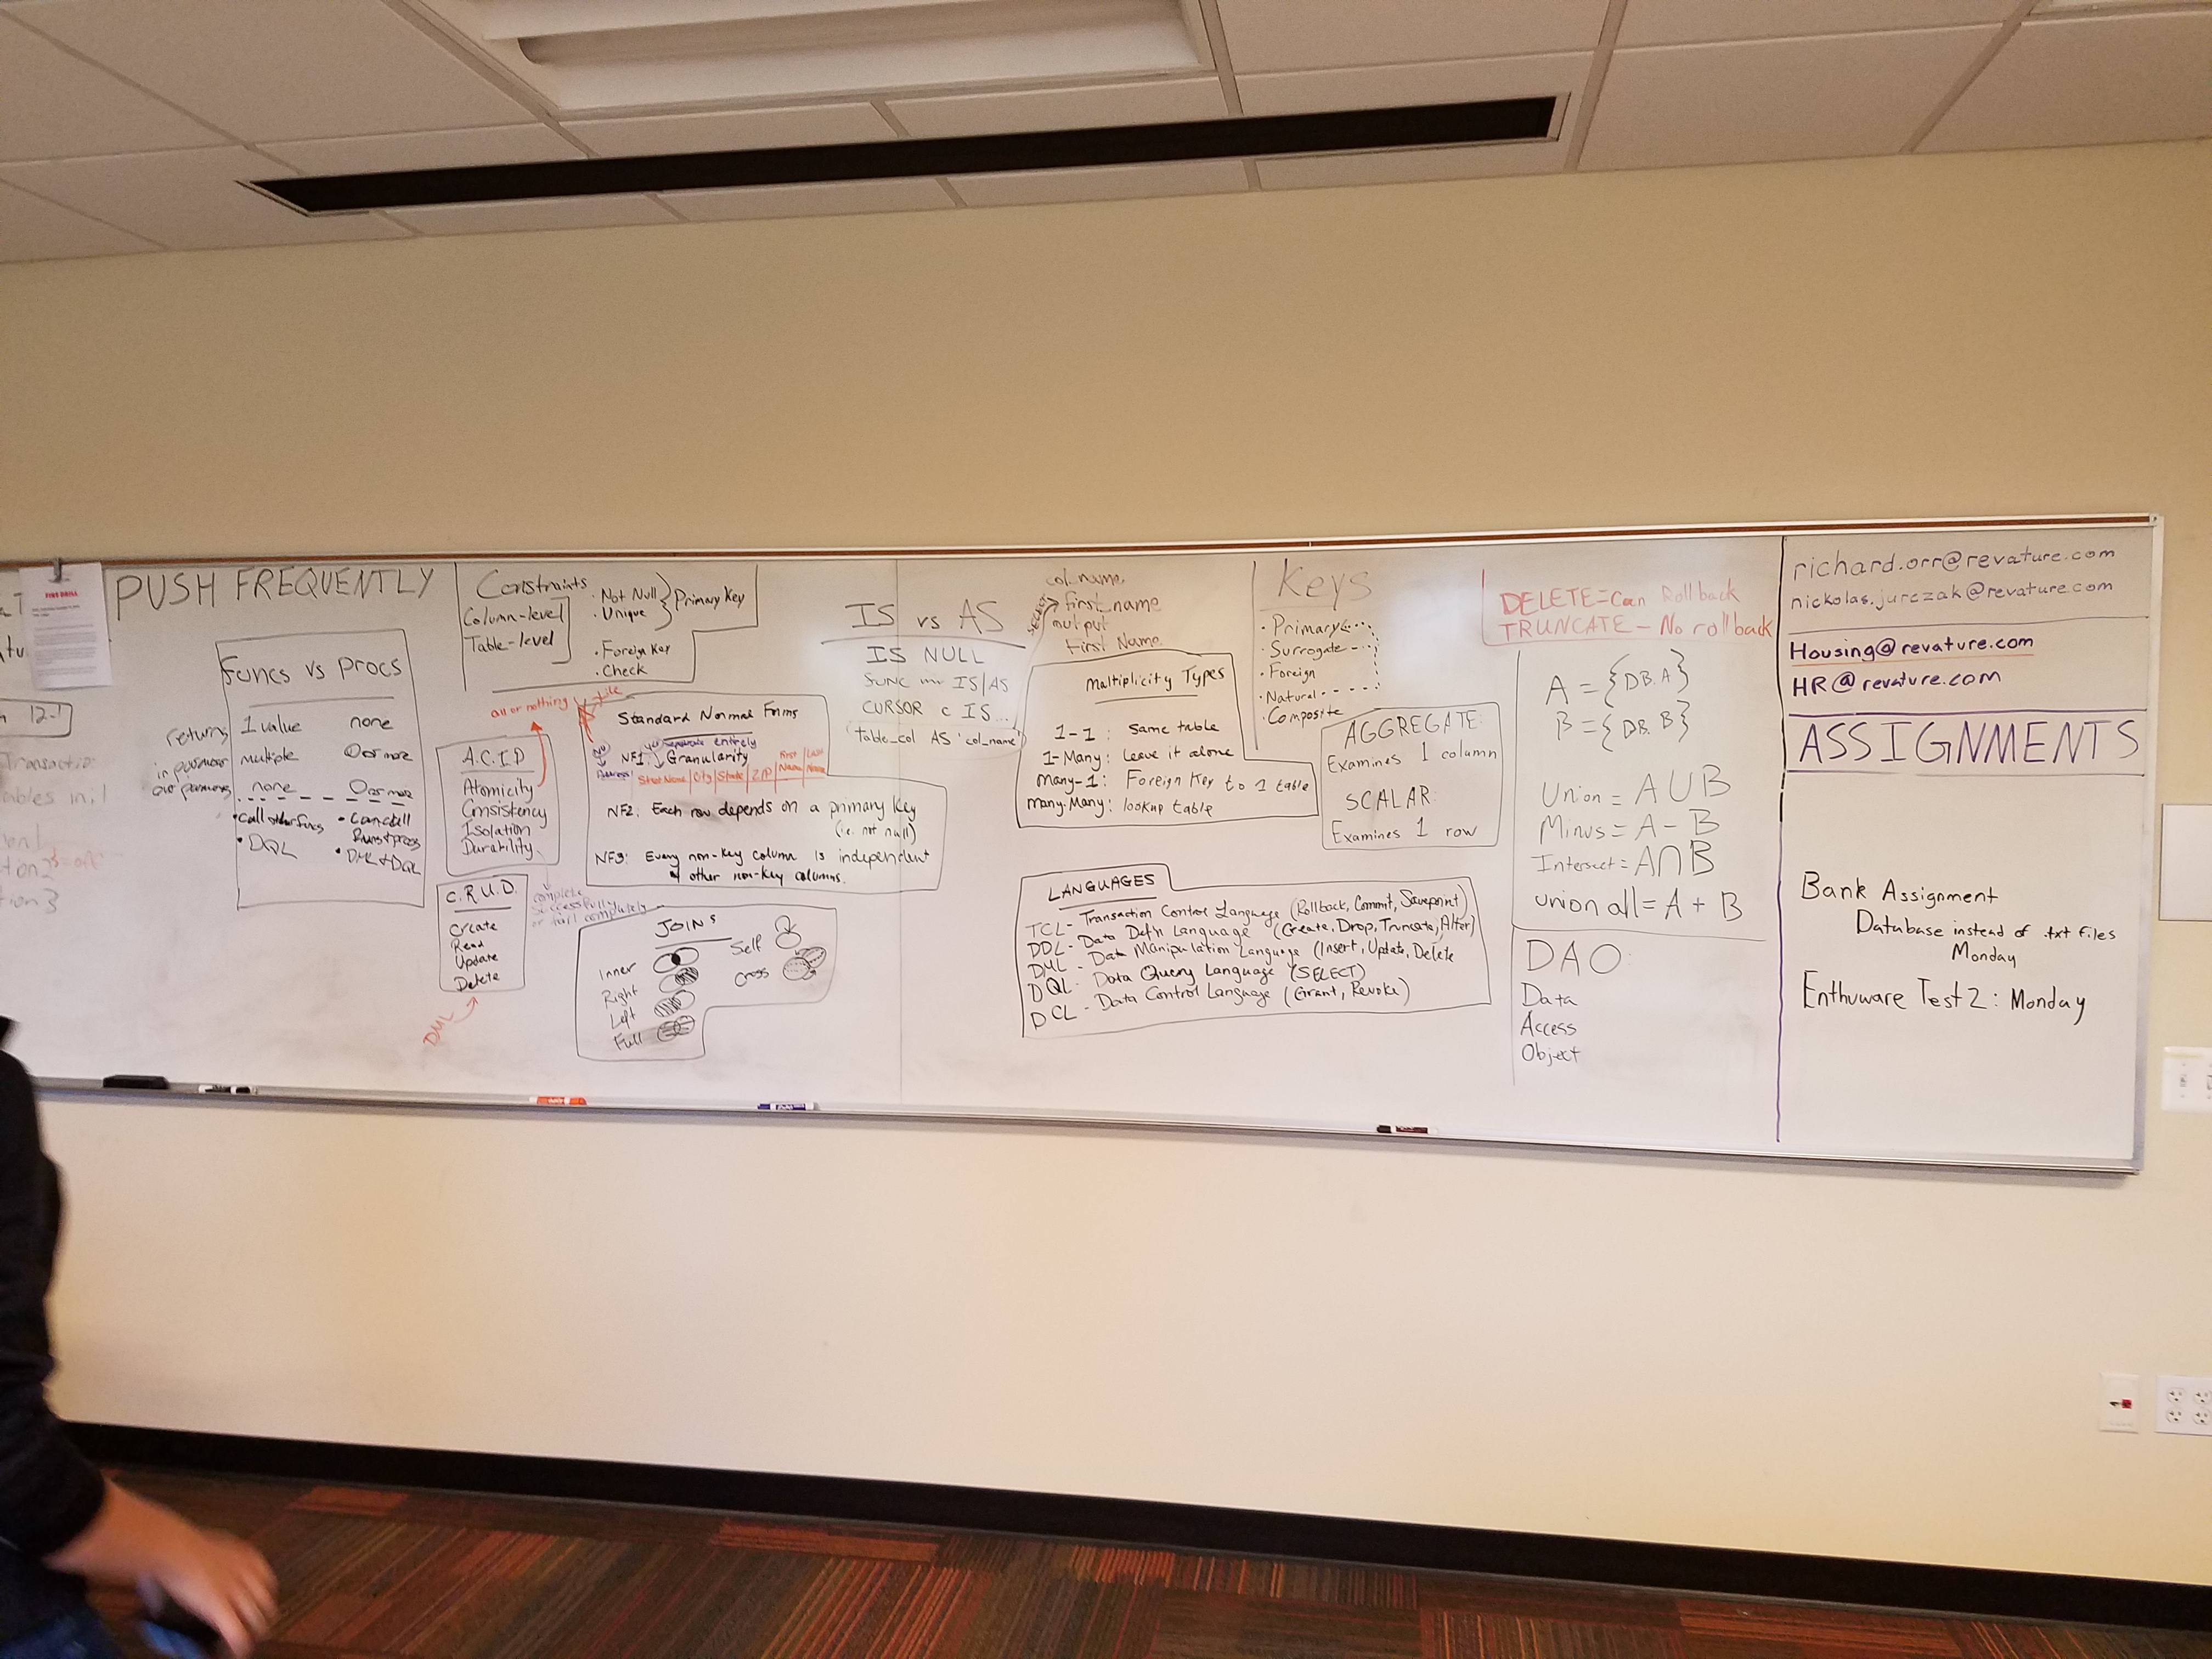 PUSH FREQUENTLY
FIRE DRILL
12-1
Funcs vs Procs
returns 1 value none
in params multiple 0 or more
out params none 0 or more
• Call other funcs • Can call
funcs + procs
• DQL • DML + DQL
Constraints
Column-level
Table-level
• Not Null
• Unique
Primary Key
• Foreign Key
• Check
all or nothing
A.C.I.D
Atomicity
Consistency
Isolation
Durability
complete
successfully
or fail completely
C.R.U.D.
Create
Read
Update
Delete
DML
Standard Normal Forms
separate entirely
NF1: Granularity
Address
Street Name | City | State | ZIP | First Name | Last Name
NF2: Each row depends on a primary key
(i.e. not null)
NF3: Every non-key column is independent
of other non-key columns.
JOINs
Inner
Right
Left
Full
Self
Cross
IS vs AS
IS NULL
FUNC IS/AS
CURSOR c IS...
table_col AS 'col_name'
col_name,
SELECT first_name
output
First Name
Multiplicity Types
1-1 : Same table
1-Many: Leave it alone
Many-1: Foreign Key to 1 table
Many-Many: lookup table
Keys
• Primary
• Surrogate
• Foreign
• Natural
• Composite
AGGREGATE:
Examines 1 column
SCALAR:
Examines 1 row
LANGUAGES
TCL - Transaction Control Language (Rollback, Commit, Savepoint)
DDL - Data Def'n Language (Create, Drop, Truncate, Alter)
DML - Data Manipulation Language (Insert, Update, Delete
DQL - Data Query Language (SELECT)
DCL - Data Control Language (Grant, Revoke)
DELETE = Can Rollback
TRUNCATE - No rollback
A = {DB.A}
B = {DB.B}
Union = A ∪ B
Minus = A - B
Intersect = A ∩ B
Union all = A + B
DAO:
Data
Access
Object
richard.orr@revature.com
nickolas.jurczak@revature.com
Housing@revature.com
HR@revature.com
ASSIGNMENTS
Bank Assignment
Database instead of .txt files
Monday
Enthuware Test 2: Monday